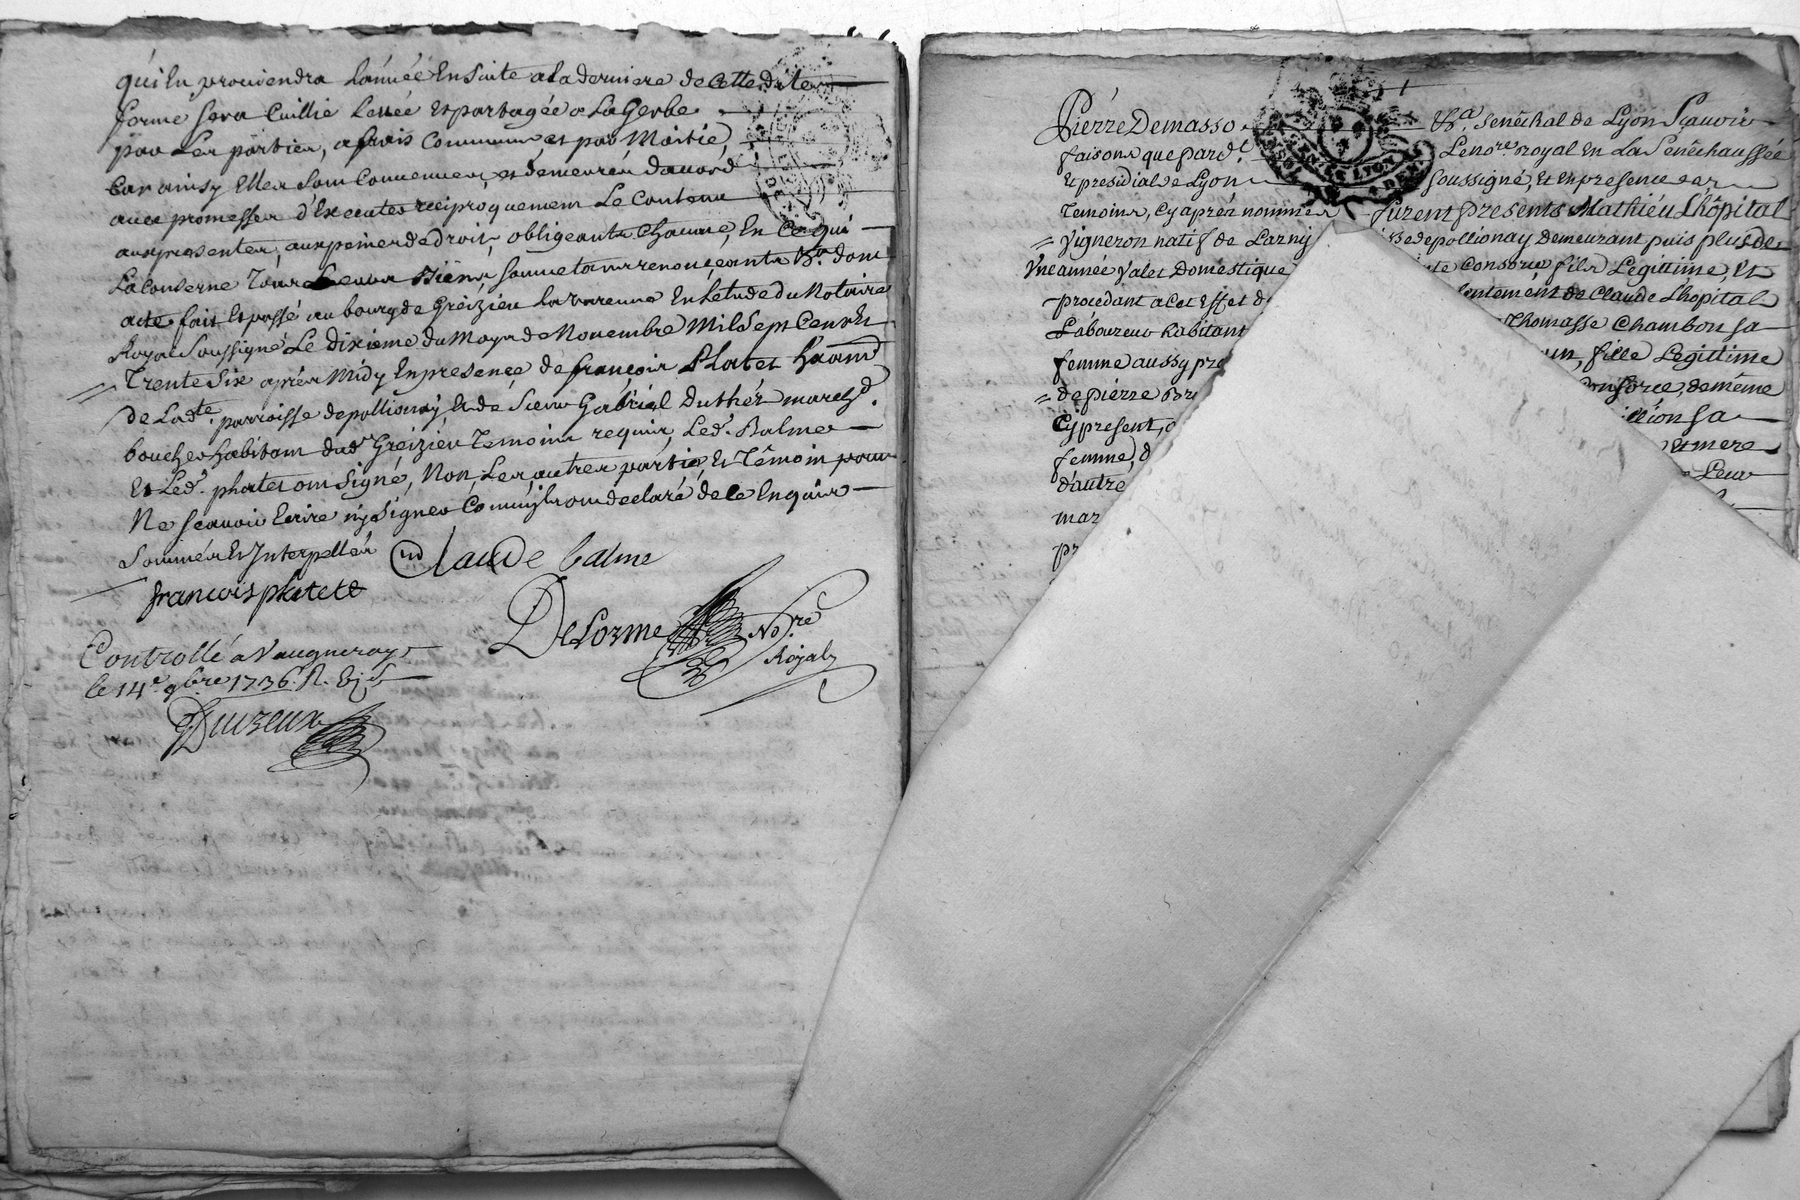 qui En proviendra lannéé Ensuite a la derniere de Cette dite
ferme sera Cuillie Levée Et partagée a La Gerbe
par Les parties, a frais Communs et par Moitié,
Car ainsy Elles sont Convenues, et demeurés dacord
avec promesses d'Executer reciproquement Le Contenu
aux presentes, aux peines de droit, obligeants Chacune, En Ce qui
La Conserne Tous Leurs Biens soumetans renonçeants &a. dont
acte fait Et passé au bourg de Greizieu La varenne En Letude du Notaire
Royal Soussigné Le dixiéme du Moys de Novembre Mil Sept Cents Et
Trente Six aprés Midy En presence de françois Platet Grand
de Lade. parroisse de pollionay Et de Sieur Gabriel Duthéz march.d
boucher habitant dud. Greizieu Temoins requis, Led. Balme
Et Led. platet ont Signé, Non, Les autres parties Et Témoin pour
Ne scavoir Ecrire ny Signer Comm'ils ont declaré de ce Enquis
Sommés Et Interpellés Claude balme
francois platete
DeLorme No.re
Royal
Controllé a Vaugneray
le 14e. 9bre 1736. R.
Duizeux
Pierre Demasso &a. Senéchal de Lyon Sçavoir
faisons que pard.t Le no.re royal En La Senéchaussée
Et presidial de Lyon soussigné, Et En presence des
Temoins, Cy aprés nommés furent presents Mathieu Lhôpital
Vigneron natif de Larny de pollionay Demeurant puis plus de
Vne année Valet Domestique Consorce fils Legittime, Et
procedant a Cet Effet d de Claude Lhopital
Laboureur habitant Thomasse Chambon sa
femme aussy pr fille Legittime
de pierre Br Consorce, de même
Cy present, sa
femme, d Et mere
d'autre Leur
mar
pr